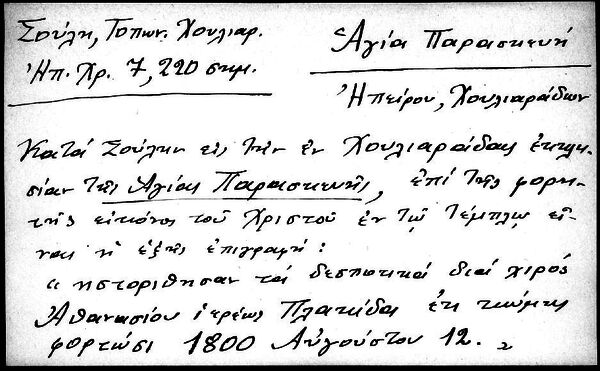 Σούλη, Τοπων. Χουλιαρ.
Ἠπ. Χρ. 7, 220 σημ.
Ἁγία Παρασκευή
Ἠπείρου, Χουλιαράδων
Κατά Σούλην εἰς τήν ἐν Χουλιαράδαις ἐκκλη-
σίαν τῆς Ἁγίας Παρασκευῆς, ἐπί τῆς φορη-
τῆς εἰκόνος τοῦ Χριστοῦ ἐν τῷ τέμπλῳ εἶ-
ναι ἡ ἑξῆς ἐπιγραφή:
"ἡστορίθησαν τά δεσποτικά διά χιρός
Ἀθανασίου ἱερέως Πλακίδα ἐκ κώμης
φορτώσι 1800 Αὐγούστου 12."